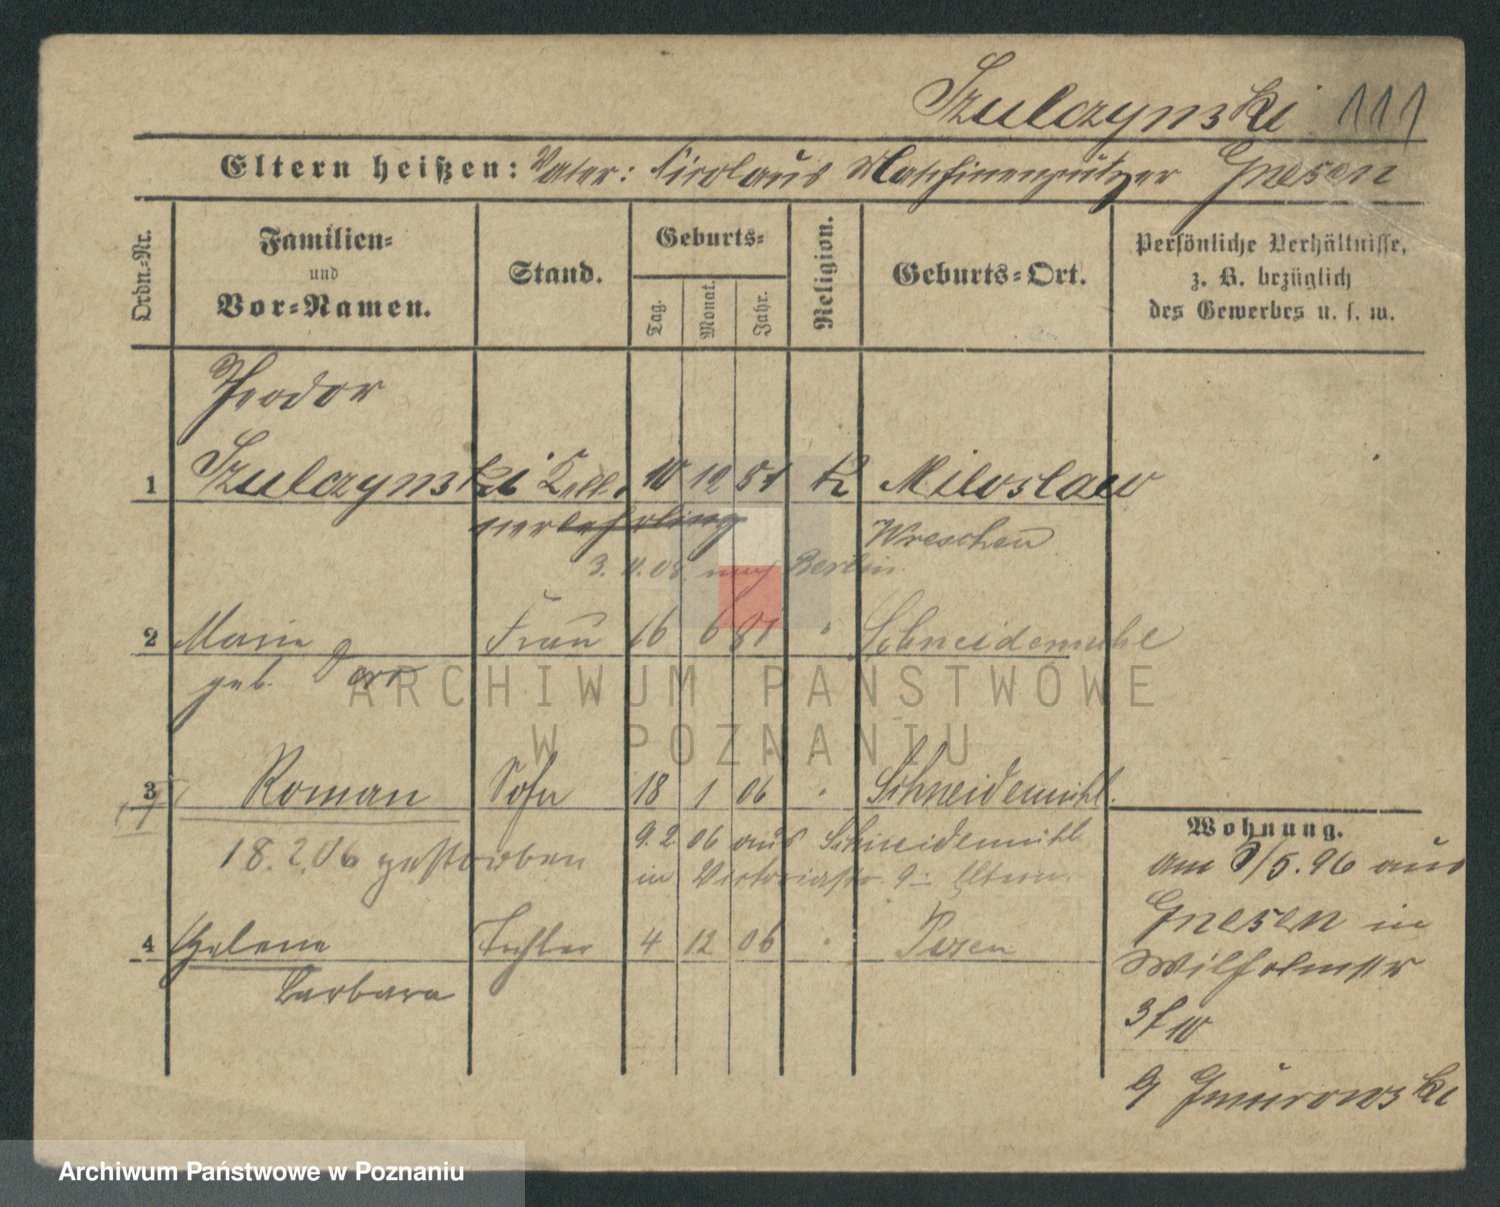 Szulczynski 111
Eltern heißen: Vater: Nicolaus Maschinenputzer Gnesen
Ordn.-Nr.
Familien-
und
Vor-Namen.
Stand.
Geburts-
Tag.
Monat.
Jahr.
Religion.
Geburts-Ort.
Persönliche Verhältnisse,
z. B. bezüglich
des Gewerbes u. s. w.
Theodor
1 Szulczynski Kell- 10 12 81 K Miloslaw
nerlehrling Wreschen
3. 11. 08 nach Berlin
2 Marie Frau 16 6 81 " Schneidemühl
geb.
3 Roman Sohn 18 1 06 " Schneidemühl.
18.2.06 gestorben
9. 2 06 aus Schneidemühl
in Victoriastr. 9 Eltern
4 Helene Tochter 4 12 06 " Posen
Barbara
Wohnung.
am 5/5.96 aus
Gnesen in
Wilhelmstr
3 f 10
b/ Gmurowski
ARCHIWUM PAŃSTWOWE
W POZNANIU
Archiwum Państwowe w Poznaniu